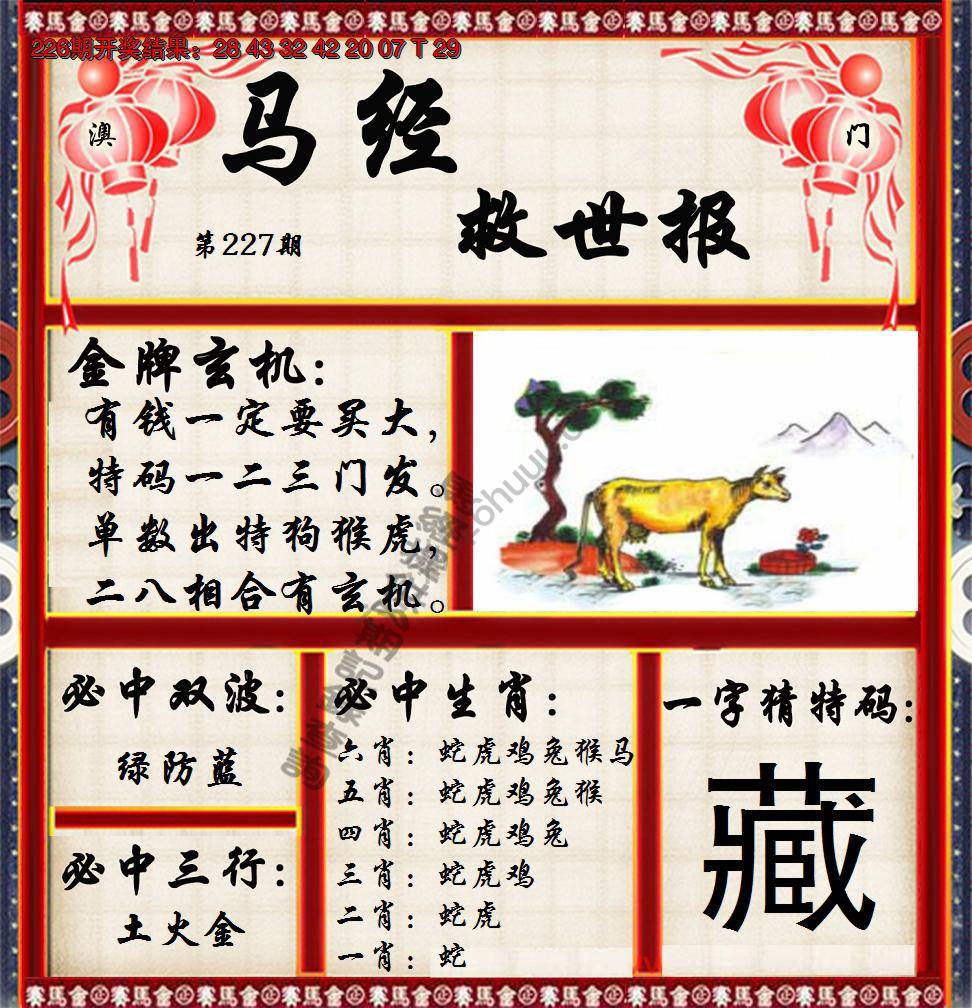 226期开奖结果：28 43 32 42 20 07 T 29
澳
门
马经
救世报
第227期
金牌玄机：
有钱一定要买大，
特码一二三门发。
单数出特狗猴虎，
二八相合有玄机。
必中双波：
绿防蓝
必中三行：
土火金
必中生肖：
六肖：蛇虎鸡兔猴马
五肖：蛇虎鸡兔猴
四肖：蛇虎鸡兔
三肖：蛇虎鸡
二肖：蛇虎
一肖：蛇
一字猜特码：
藏